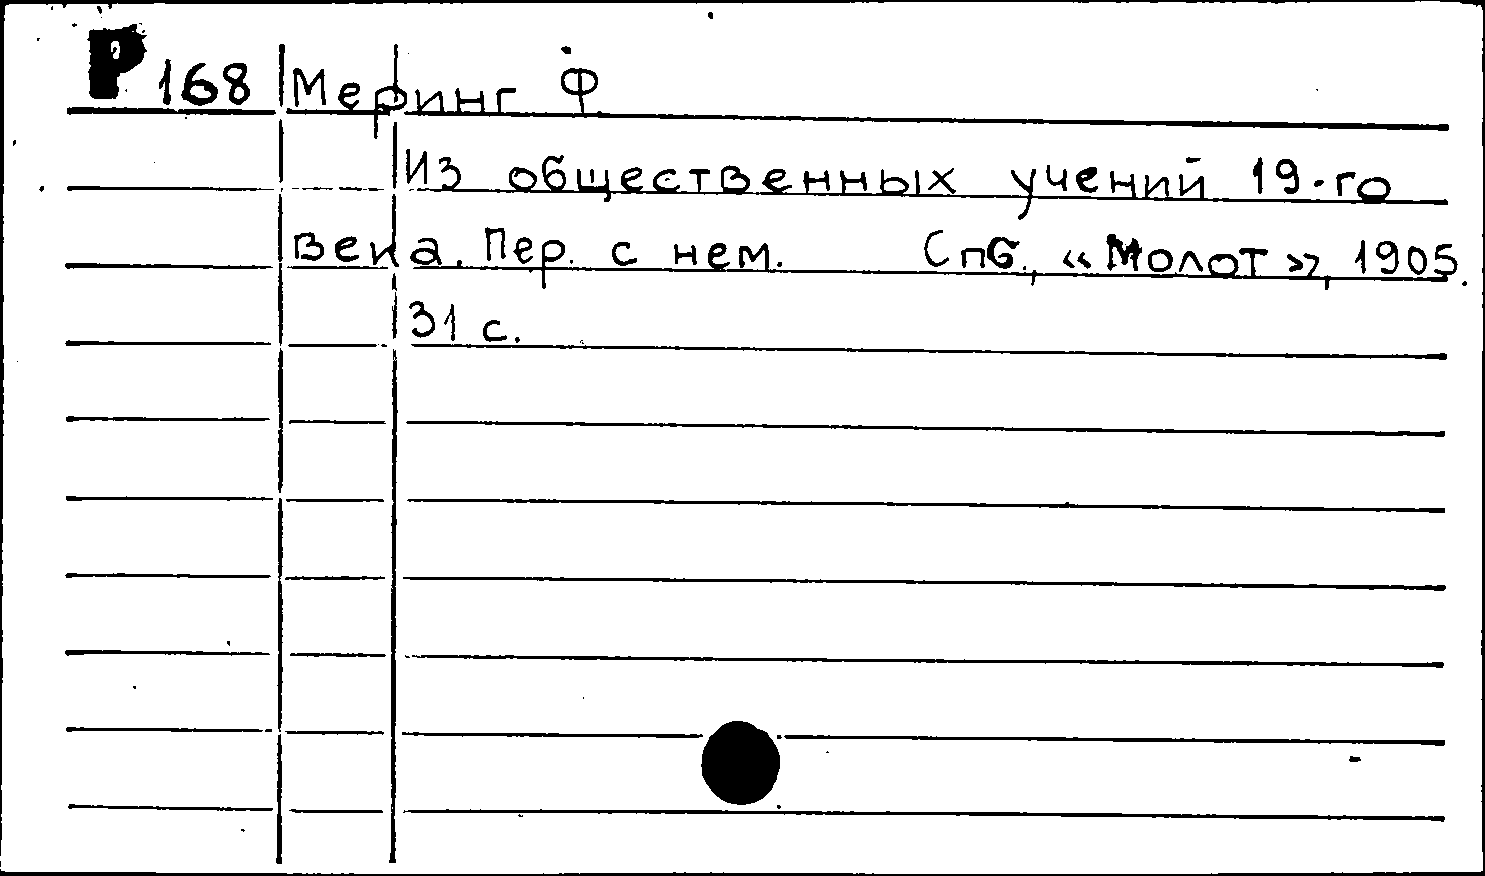 Р 168 Меринг Ф
Из общественных учений 19-го
века. Пер. с нем. Спб., «Молот», 1905.
31 с.